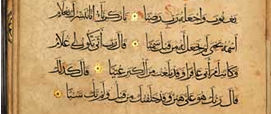 يعقوب واجعله رب رضيا يا زكريا انا نبشرك بغلام
اسمه يحيى لم نجعل له من قبل سميا قال رب انى يكون لى غلام
وكانت امراتى عاقرا وقد بلغت من الكبر عتيا قال كذلك
قال ربك هو على هين وقد خلقتك من قبل ولم تك شيئا